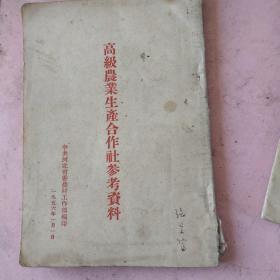 高級農業生產合作社參考資料
中共河北省委農村工作部編印
一九五六年一月一日